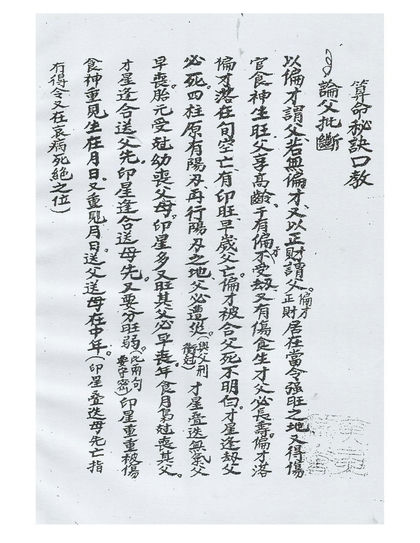 算命秘訣口教
論父批斷
以偏才謂父若無偏才又以正財謂父偏才正財居在當令強旺之地又得傷
官食神生旺父享高齡干有偏才不受刼又有傷食生才父必長壽偏才落
偏才落在旬空亡有印旺早歲父亡偏才被合父死不明白才星逢刼父
必死四柱原有陽刃再行陽刃之地父必遭災(與父刑衝尅)才星叠迭無氣父
早喪胎元受尅幼喪父母印星多又旺其父必早喪年食月傷尅喪其父
才星逢合送父先印星逢合送母先又要分旺弱(此兩句要守密)印星重重被傷
食神重見生在月日又重見月日送父送母在中年(印星叠迭母先亡指
有得令又在衰病死絕之位)